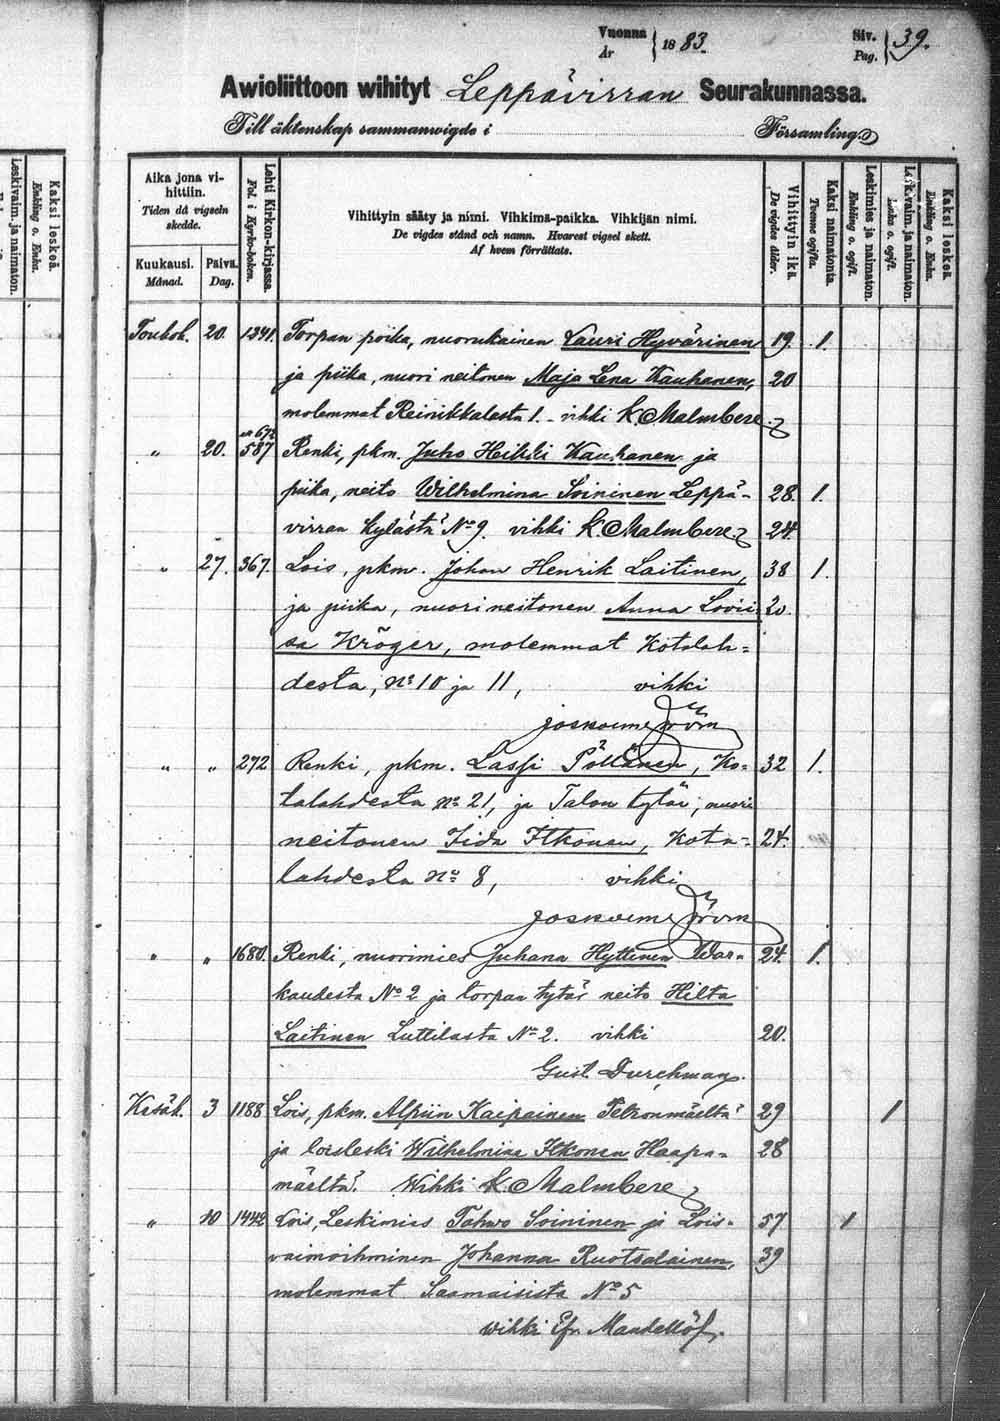 Vuonna
År } 1883.
Siv.
Pag. } 39.
Awioliittoon wihityt Leppävirran Seurakunnassa.
Till äktenskap sammanvigde i Församling
Aika jona vi-
hittiin.
Tiden då vigseln
skedde.
Kuukausi.
Månad.
Päivä.
Dag.
Lehti Kirkon-kirjassa.
Fol. i Kyrko-boken.
Vihittyin sääty ja nimi. Vihkimä-paikka. Vihkijän nimi.
De vigdes stånd och namn. Hvarest vigsel skett.
Af hvem förrättats.
Vihittyin ikä.
De vigdes ålder.
Kaksi naimatonta.
Tvenne ogifta.
Leskimies ja naimaton.
Enkling o. ogift.
Leskivaim. ja naimaton.
Enka o. ogift.
Kaksi leskeä.
Enkling o. Enka.
Leskivaim. ja naimaton.
Kaksi leskeä.
Enkling o. Enka.
Toukok. 20. 1241. Torpan poika, nuorukainen Lauri Hyvärinen 19. 1.
ja piika, nuori neitonen Maja Lena Kauhanen, 20
molemmat Reinikkalasta 1. - vihki K. Malmberg
672
„ 20. 587 Renki, pkm. Juho Heikki Kauhanen ja
piika, neito Wilhelmina Soininen Leppä- 28. 1.
virran kylästä No 9. vihki K. Malmberg 24.
„ 27. 367. Lois, pkm. Johan Henrik Laitinen, 38 1.
ja piika, nuori neitonen Anna Lovii- 20.
sa Kröger, molemmat Kotalah=
desta, No 10 ja 11, vihki
„ „ 272 Renki, pkm. Lassi Pöllänen, Ko= 32 1.
talahdesta No 21, ja Talon tytär, nuori
neitonen Iida Itkonen, Kota= 24.
lahdesta No 8, vihki
„ „ 1680. Renki, nuorimies Juhana Hyttinen War= 24. 1.
kaudesta No 2 ja torpan tytär neito Hilta
Laitinen Luttilasta No 2. vihki 20.
Gust. Durchman.
Kesäk. 3 1188 Lois, pkm. Alpiin Kaipainen Petronmäeltä 29 1
ja loisleski Wilhelmina Itkonen Haapa= 28
mäeltä. Wihki K. Malmberg
„ 10 1442 Lois, Leskimies Tahwo Soininen ja Lois= 57 1
vaimoihminen Johanna Ruotsalainen, 39
molemmat Saamaisista No 5
wihki Efr. Mandellöf.